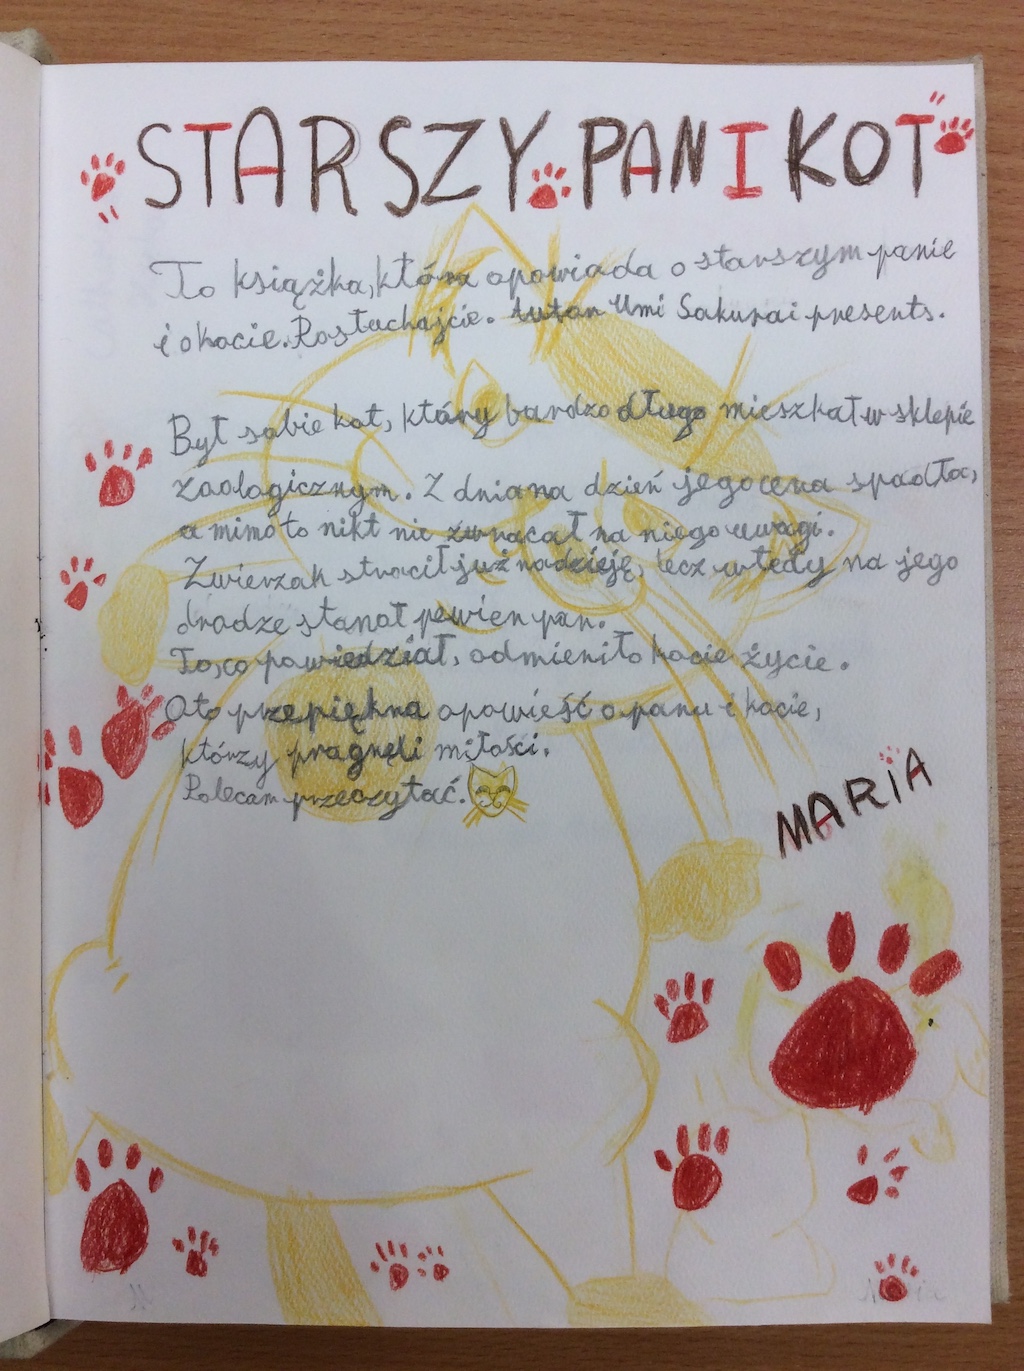 STARSZY PAN I KOT
To książka, która opowiada o starszym panie
i o kocie. Posłuchajcie. Autor Umi Sakurai presents.
Był sobie kot, który bardzo długo mieszkał w sklepie
zoologicznym. Z dnia na dzień jego cena spadła,
a mimo to nikt nie zwracał na niego uwagi.
Zwierzak stracił już nadzieję, lecz wtedy na jego
drodze stanął pewien pan.
To, co powiedział, odmieniło kocie życie.
Oto przepiękna opowieść o panu i kocie,
którzy pragnęli miłości.
Polecam przeczytać.
MARIA